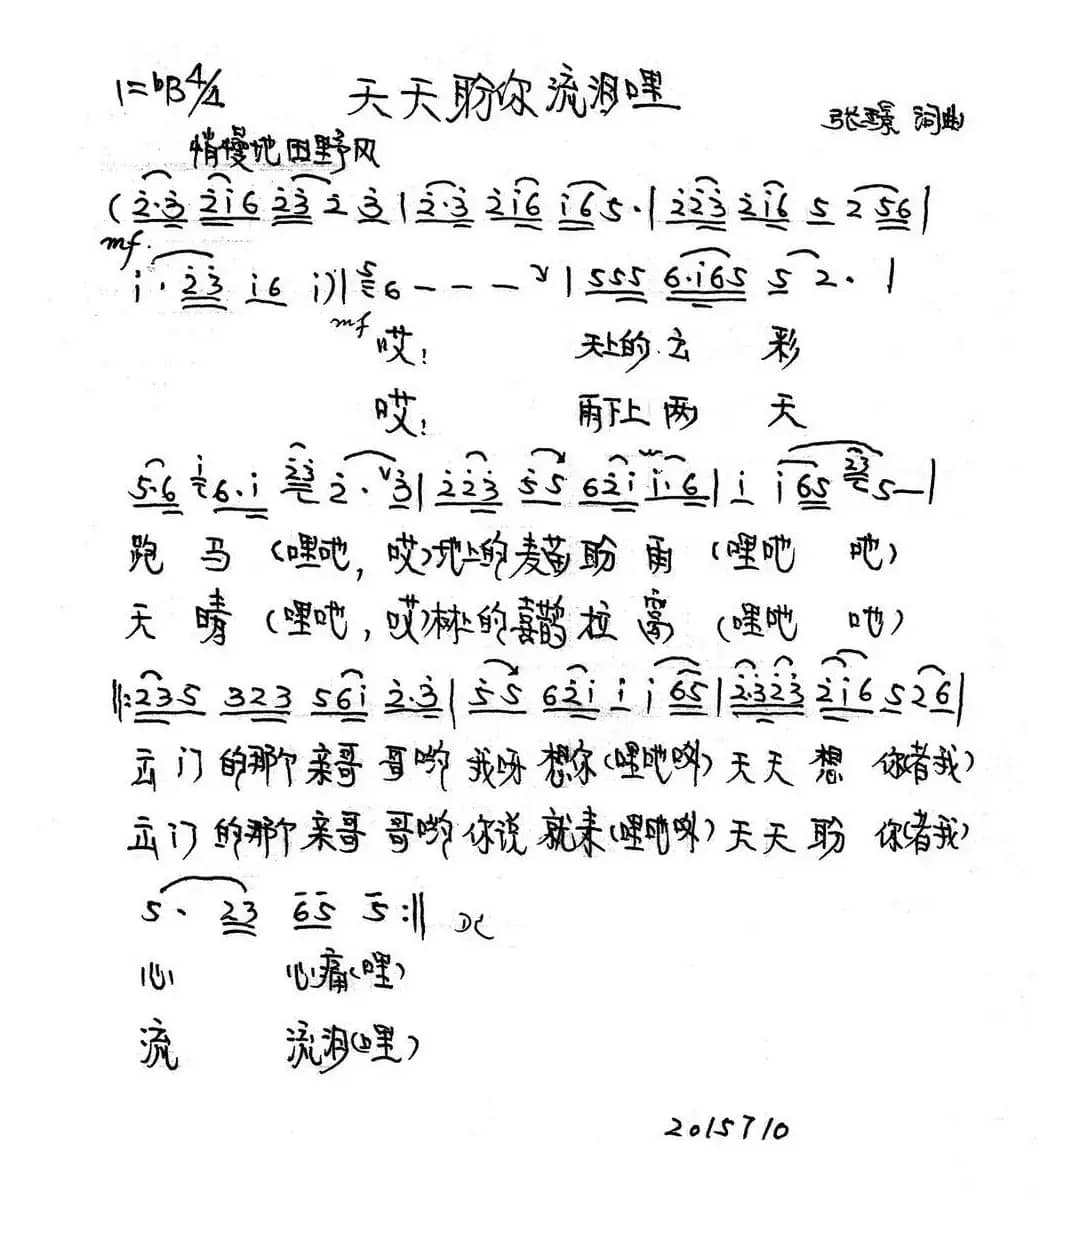 1=♭B 4/4 天天盼你流泪哩
张璟 词曲
稍慢地田野风
(2̇·3̇ 2̇i̇6 2̇3̇ 2̇ 3̇|2̇·3̇ 2̇i̇6 i̇65·|2̇2̇3̇ 2̇i̇6 5 2 56|
mf.
i̇·2̇3̇ i̇6 i̇)|5 6 - - - ∨|555 6·i̇65 5 2·|
mf
哎! 天上的云 彩
哎! 雨下上两 天
5·6 i̇ 6·i̇ 2̇3̇ 2̇·∨3̇|2̇2̇3̇ 5̇5 62̇i̇ i̇·6|i̇ i̇65 2̇3̇ 5—|
跑 马 (哩吔, 哎)地上的麦苗盼 雨 (哩吔 吔)
天 晴 (哩吔, 哎)林上的喜鹊拉 窝 (哩吔 吔)
‖:235 323 56i̇ 2̇·3̇|5̇5 62̇i̇ i̇ i̇65|2̇·3̇2̇3̇ 2̇i̇6 526|
云门的那个亲哥 哥哟 我呀 想你(哩吔哟)天天 想 你(者我)
云门的那个亲哥 哥哟 你说 就来(哩吔哟)天天 盼 你(者我)
5· 23 65 5:‖ DC
心 心痛(哩)
流 流泪(哩)
2015 7 10